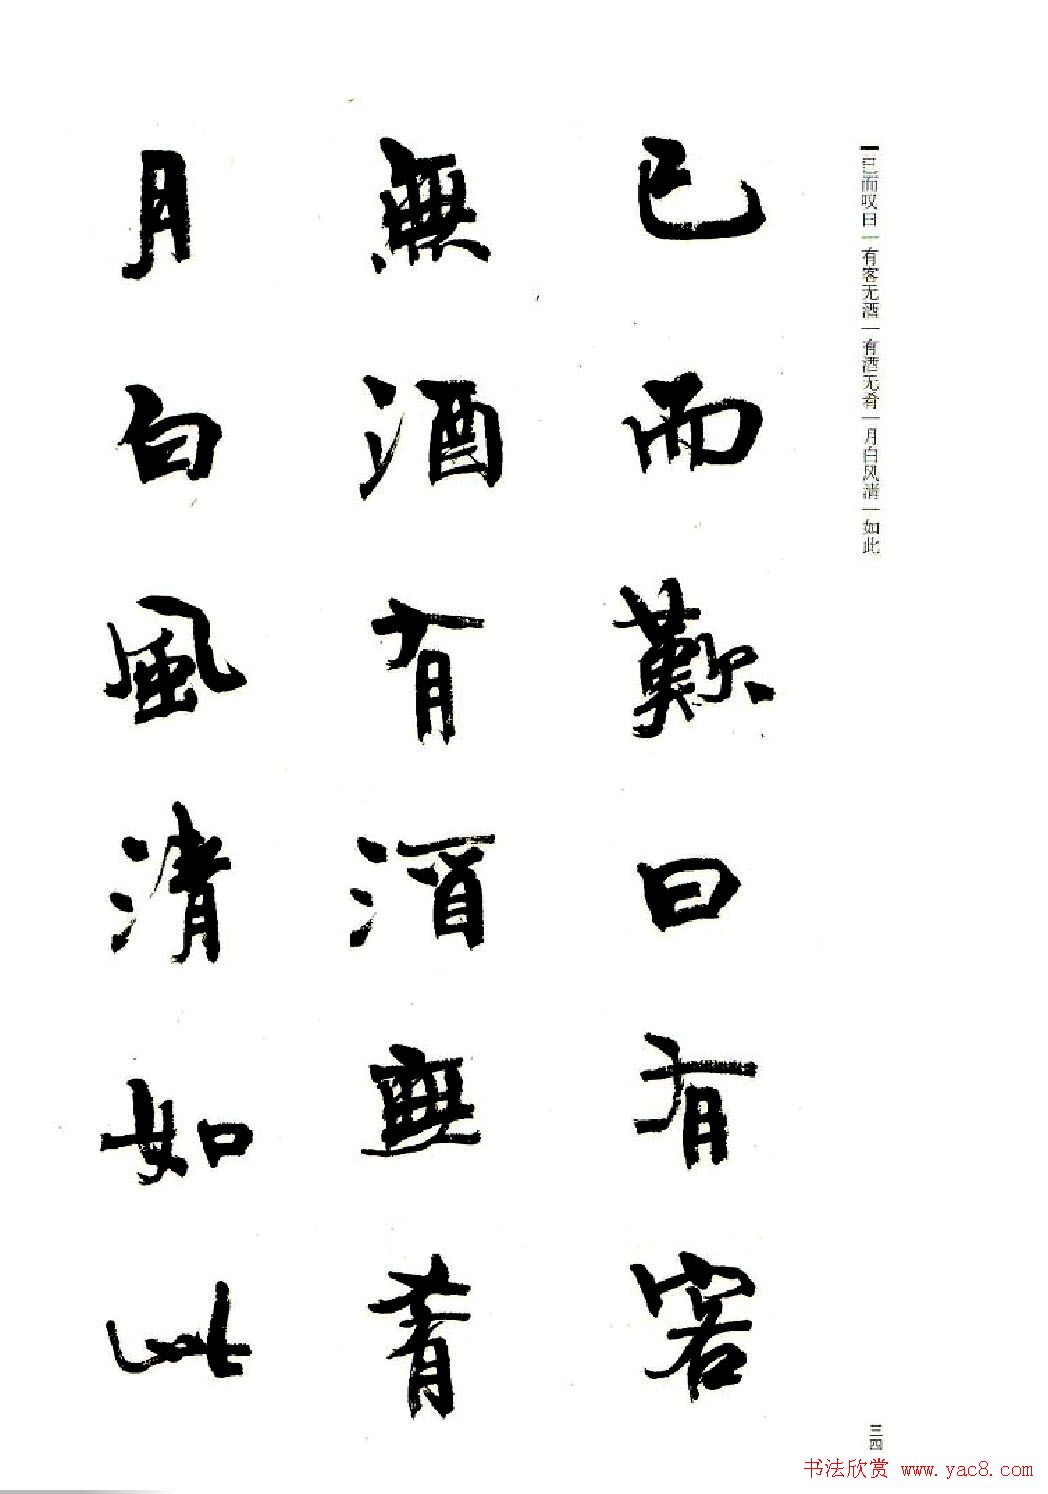 已而叹曰｜有客无酒｜有酒无肴｜月白风清｜如此
已而歎曰有客
無酒有酒無肴
月白風清如此
三四
书法欣赏 www.yac8.com